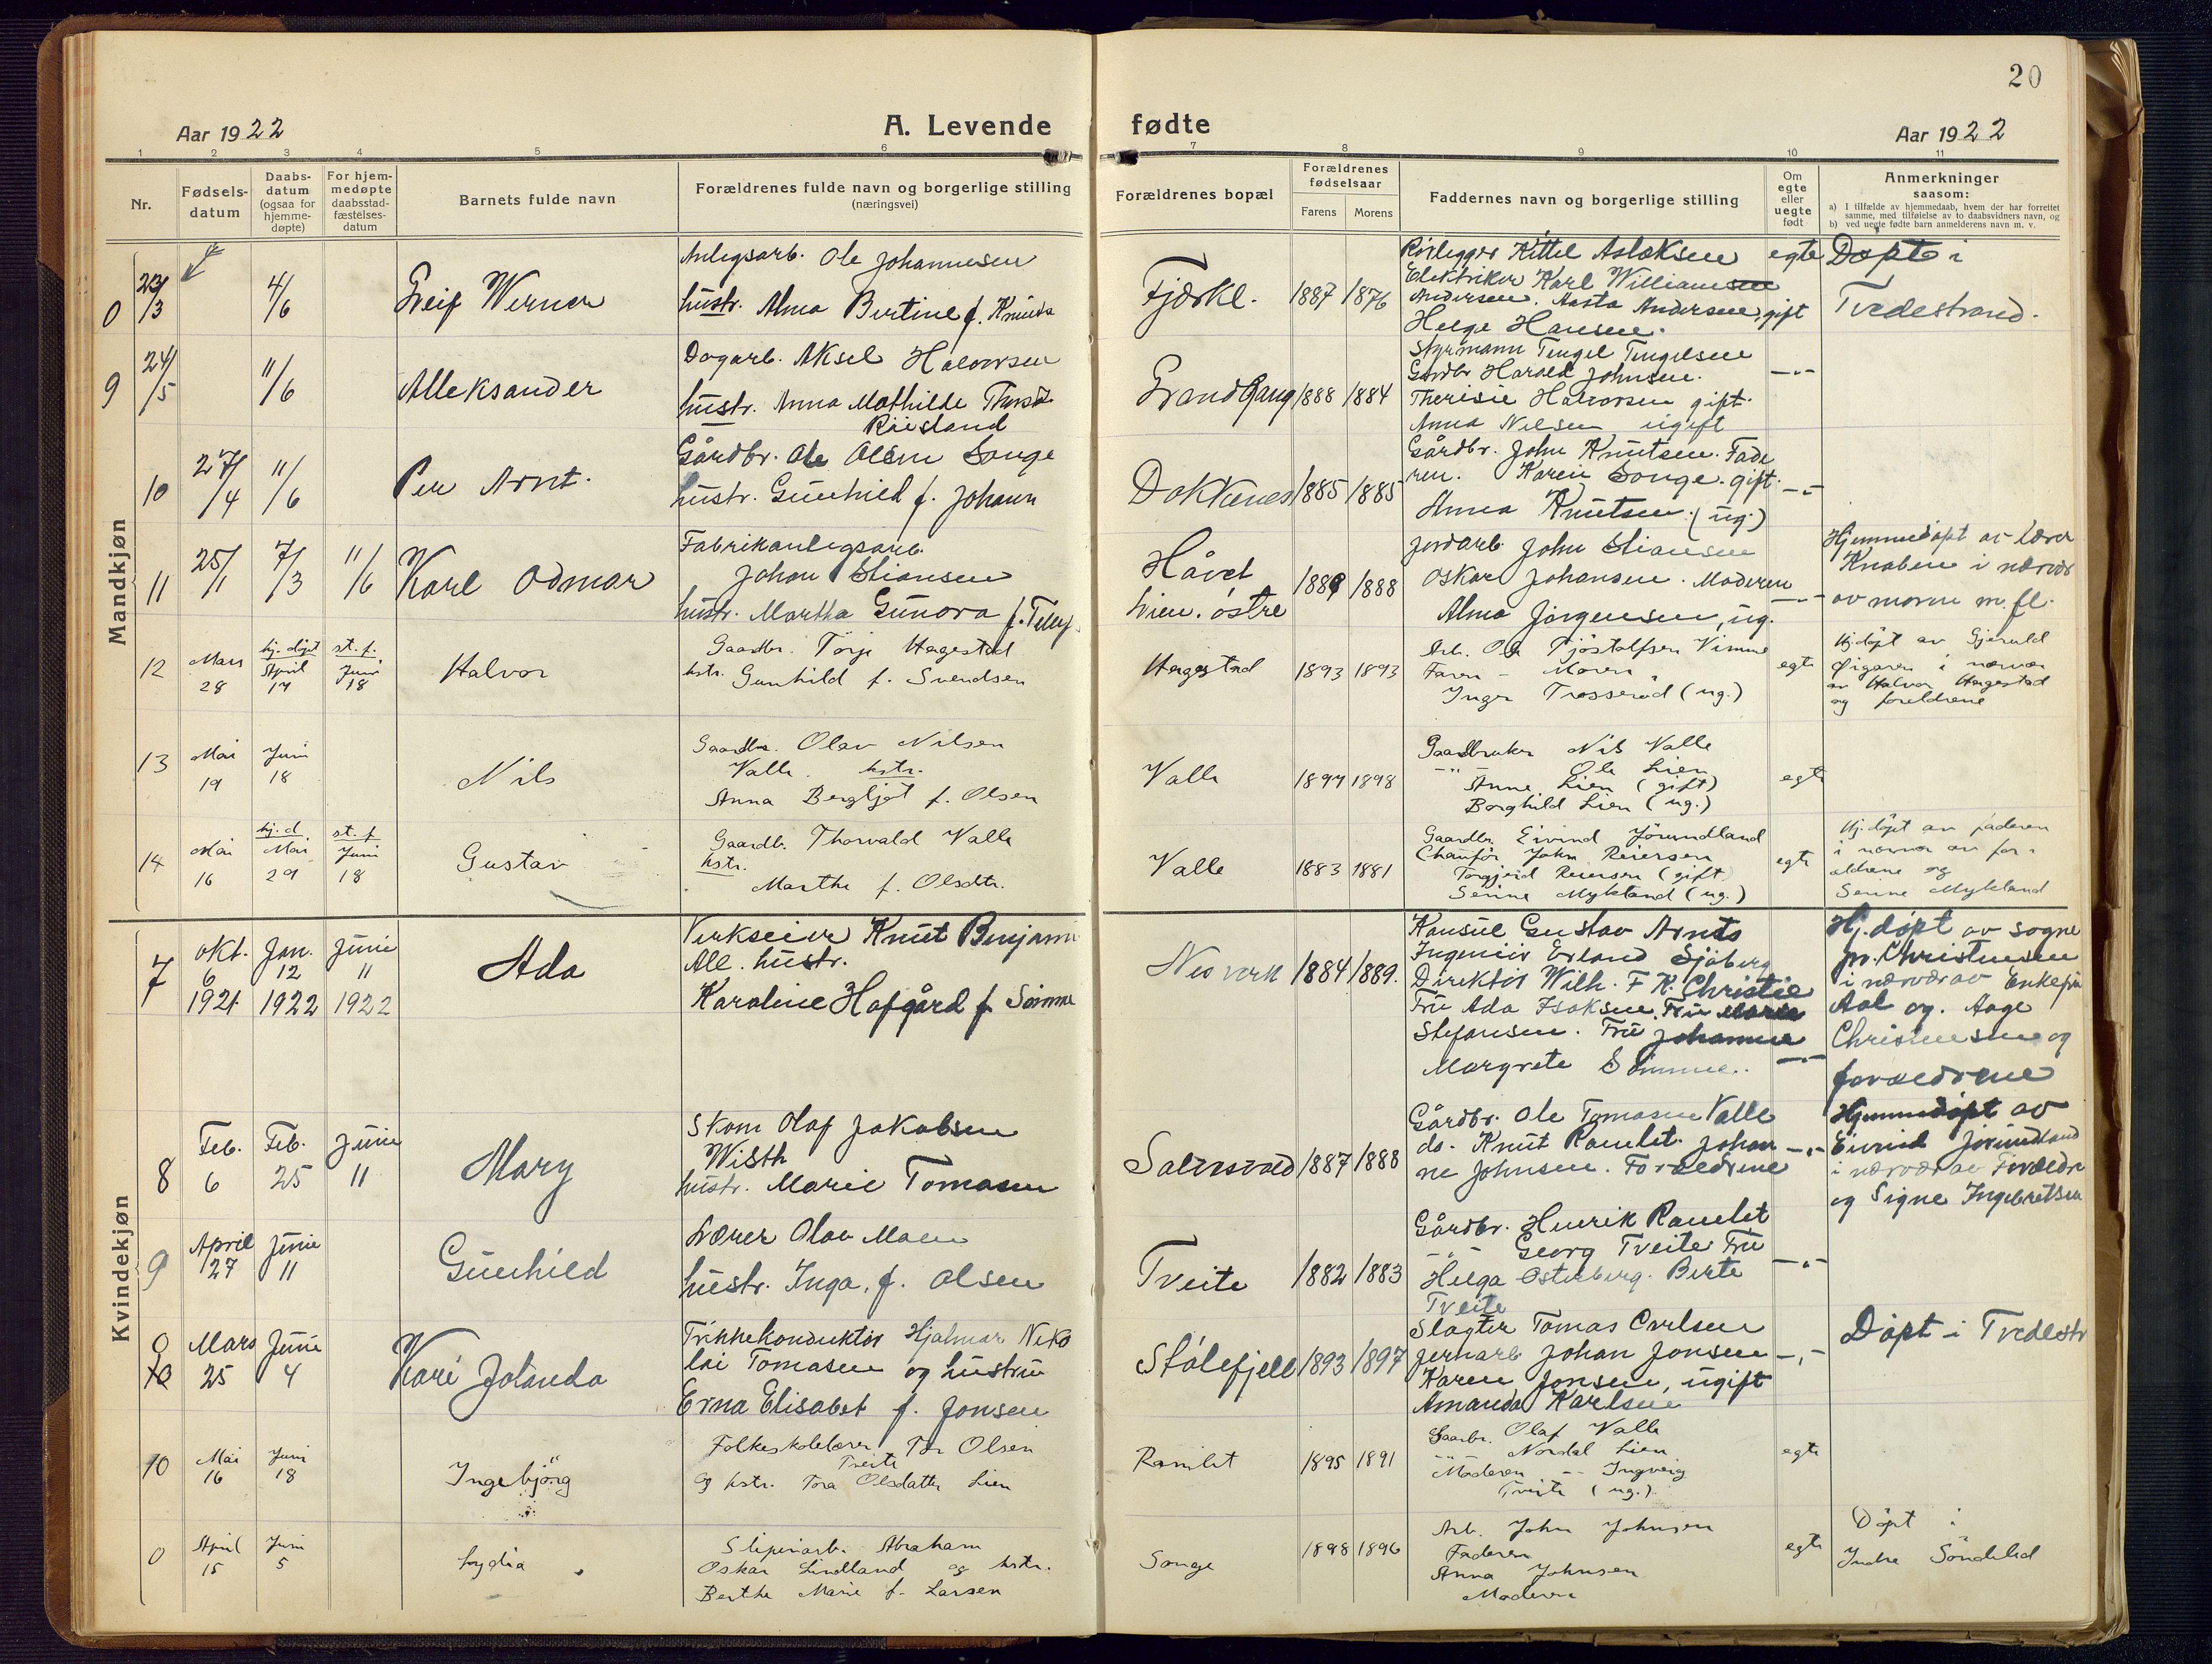 20
Aar 1922
A. Levende
fødte
Aar 1922
1 2 3 4 5 6 7 8 9 10 11
Nr.
Fødsels-
datum
Daabs-
datum
(ogsaa for
hjemme-
døpte)
For hjem-
medøpte
daabsstad-
fæstelses-
datum
Barnets fulde navn
Forældrenes fulde navn og borgerlige stilling
(næringsvei)
Forældrenes bopæl
Forældrenes
fødselsaar
Farens Morens
Faddernes navn og borgerlige stilling
Om
egte
eller
uegte
født
Anmerkninger
saasom:
a) I tilfælde av hjemmedaab, hvem der har forrettet
samme, med tilføielse av to daabsvidners navn, og
b) ved uegte fødte barn anmelderens navn m. v.
Mandkjøn
0 23/3 4/6 Leif Werner
Anlegsarb. Ole Johannesen
hustr. Alma Bertine f. Knuds
Fjærkl. 1887 1876
Rørlegger Kittel Aslaksen
Elektriker Karl Williamsen
Andersen. Aasta Andersen, gift
Helge Hansen.
egte
Døpt i
Tvedestrand.
9 24/5 11/6 Alleksander
Dagarb. Aksel Halvorsen
hustr. Anna Mathilde
Røisland
1888 1884
Styrmann Tengel Tengelsen
Gardbr Harald Johnsen.
Therisie Halvorsen gift.
Anna Nilsen ugift
—"—
10 27/4 11/6 Per Arnt.
Gårdbr. Ole Olsen Songe
hustr. Gunhild f. Johann
Dokkenes 1885 1885
Gårdbr. John Knutsen. Fade
ren. Karen Songe. gift.
Anna Knutsen. (ug.)
—"—
11 25/1 7/3 11/6 Karl Odmar
Fabrikanlegsarb.
Johan Stiansen
hustr. Martha Gunora f.
Håvet
østre
1888
Jordarb. John Stiansen
Oskar Johansen. Moderen
Alma Jørgensen, ug.
—"—
Hjemmedøpt av lærer
Knaben i nærvær
av moren m. fl.
12 Mars 28
hj. døpt April 17
st. f. Juni 18
Halvor
Gaardbr. Torje Hagestad
hstr. Gunhild f. Svendsen
Hagestad 1893 1893
Arb. Ole Tjøstolfsen Vimme
Faren – Moren
Inger Trosserød (ug.)
egte
Hj. døpt av Gjeruld
Øigaren i nærvær
av Halvor Hagestad
og foreldrene
13 Mai 19 Juni 18 Nils
Gaardbr. Olav Nilsen
Valle. hstr.
Anna Bergljot f. Olsen
Valle 1897 1898
Gaardbruker Nils Valle
—"— Ole Lien
Anne Lien (gift)
Borghild Lien (ug.)
egte
14 Mai 16
hj. d. Mai 29
st. f. Juni 18
Gustav
Gaardb. Thorvald Valle
hstr.
Marthe f. Olsdtr.
Valle 1883 1881
Gaardbr. Eivind Jörundland
Chauför John Reiersen
Torgjerd Reiersen (gift)
Serine Mykland (ug.)
egte
Hj. døpt av faderen
i nærvær av for-
ældrene og
Serine Mykland
Kvindekjøn
7 Okt. 6 1921 Jan. 12 1922 Juni 11 1922
Ada
Verkseier Knut Benjamin
All. hustr.
Karoline Hofgård f. Sømme
Nes verk 1884 1889.
Konsul Gustav Arntz
Ingeniör Erland Sjöberg
Direktör Wilh. F. K. Christie
Fru Ada Isaksen. Fru Maria
Stefansen. Fru Johanne
Margrete Sømme.
—"—
Hj. døpt av sogne
pr. Christensen
i nærvær av Enkefru
Aal og Aage
Christensen og
forældrene
8 Feb. 6 Feb. 25 Juni 11 Mary
Skom Olaf Jakobsen
Wisth
hustr. Marie Tomasen
Solversvold 1887 1888
Gårdbr. Ole Tomasen Valle
do. Knut Ramlet. Johan
ne Johnsen. Forældrene
—"—
Hjemmedøpt av
Eivind Jorundland
i nærvær av Foreldre
og Signe Ingebretsen
9 April 27 Juni 11 Gunhild
Lærer Olav Moen
hustr. Inga, f. Olsen
Tveite 1882 1883
Gårdbr. Henrik Ramlet
—"— Georg Tveite Fru
Helga Østerberg. Berte
Tveite
—"—
0 10 Mars 25 Juni 4 Kari Jolanda
Trikkekonduktör Hjalmar Niko
lai Tomasen og hustru
Erna Elisabet f. Jonsen
Stölefjell 1893 1897
Slagter Tomas Carlsen
Jernarb Johan Jonsen
Karen Jonsen, ugift
Amanda Karlsen
—"—
Døpt i Tvedestr
10 Mai 16 Juni 18 Ingebjörg
Folkeskolelærer Tor Olsen
Tveite
og hstr. Tora Olsdatter Lien
Ramlet 1895 1891
Gaardbr. Olaf Valle
—"— Nordal Lien
Moderen – Ingveig
Tveite (ug.)
egte
0 April 15 Juni 5 Lydia
Sliperiarb. Abraham
Oskar Lindland og hstr.
Berthe Marie f. Larsen
Songe 1898 1896
Arb. John Johnsen
Faderen
Anna Johnsen
Moderen
egte
Døpt i
Indre Söndeled